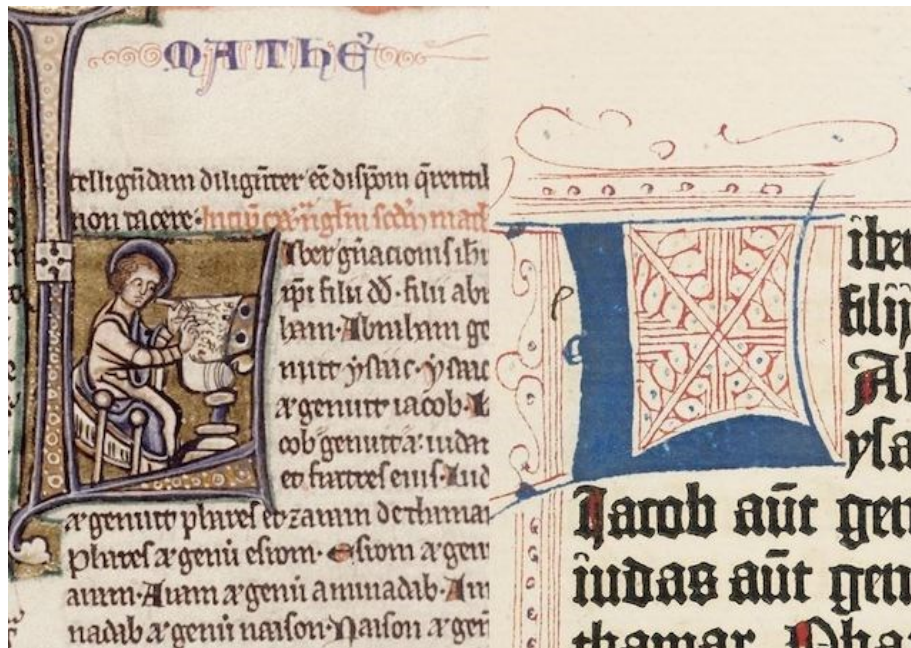 MATHE
telligēdam diligēter eē dispōm q̄rentib
non tacere·
L
iber gn̄acionis ihu
xp̄i filii dd̄· filii abr
ham· Abraham ge
nuit ysaac· ysaac
a genuit iacob· I
cob genuit a iudā
et fratres eius· Iud
a genuit phares et zaram de thamar
Phares a genū esrom· Esrom a genu
aram· Aram a genū aminadab· Am
nadab a genū naason· Naason a gen
L
iber
filij
Ab
ysa
Jacob aūt gen
iudas aūt gen
thamar. Phar